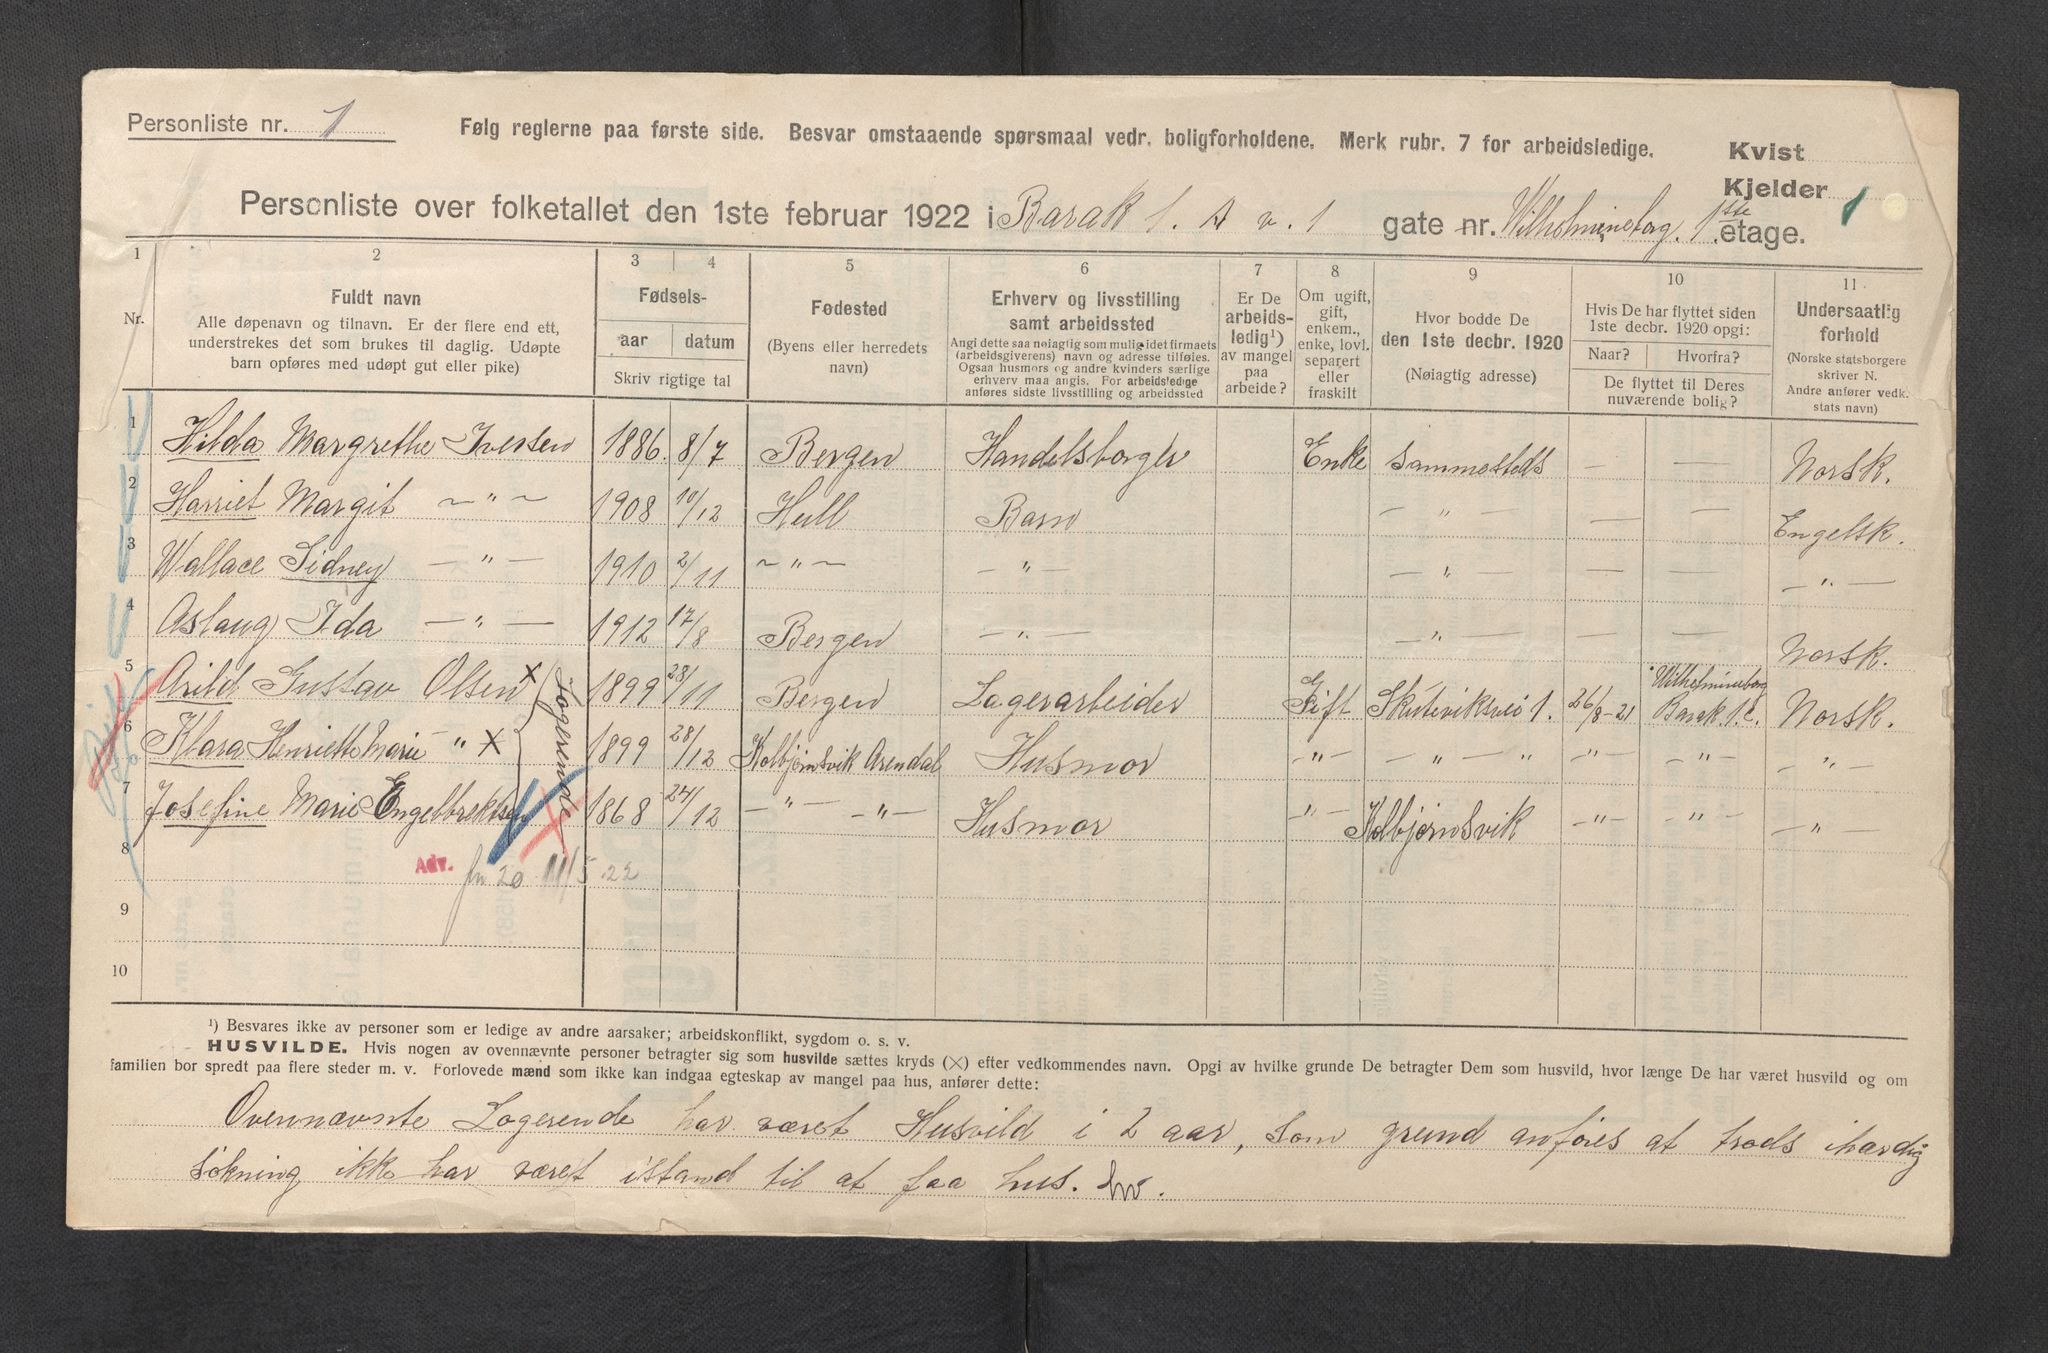 Personliste nr. 1
Følg reglerne paa første side. Besvar omstaaende spørsmaal vedr. boligforholdene. Merk rubr. 7 for arbeidsledige.
Kvist
Kjelder 1
Personliste over folketallet den 1ste februar 1922 i Barak 1. A v. 1 gate nr. Wilhelmineborg. 1ste etage.
1 2 3 4 5 6 7 8 9 10 11
Nr.
Fuldt navn
Alle døpenavn og tilnavn. Er der flere end ett,
understrekes det som brukes til daglig. Udøpte
barn opføres med udøpt gut eller pike)
Fødsels-
aar datum
Skriv rigtige tal
Fødested
(Byens eller herredets
navn)
Erhverv og livsstilling
samt arbeidssted
Angi dette saa nøiagtig som mulig, idet firmaets
(arbeidsgiverens) navn og adresse tilføies.
Ogsaa husmors og andre kvinders særlige
erhverv maa angis. For arbeidsledige
anføres sidste livsstilling og arbeidssted
Er De
arbeids-
ledig¹)
av mangel
paa
arbeide?
Om ugift,
gift,
enkem.,
enke, lovl.
separert
eller
fraskilt
Hvor bodde De
den 1ste decbr. 1920
(Nøiagtig adresse)
Hvis De har flyttet siden
1ste decbr. 1920 opgi:
Naar? Hvorfra?
De flyttet til Deres
nuværende bolig?
Undersaatlig
forhold
(Norske statsborgere
skriver N.
Andre anfører vedk.
stats navn)
1 Hilda Margrethe Iversen 1886. 8/7 Bergen Handelsborger Enke Sammesteds — — Norsk.
2 Harriet Margit ~ " ~ 1908 10/12 Hull Barn — " — — — Engelsk.
3 Wallace Sidney — " — 1910 2/11 ~ " ~ — " — — " — — — — " —
4 Aslaug Ida — " — 1912 17/8 Bergen — " — — " — — — Norsk.
5 Arild Gustav Olsen x 1899 28/11 Bergen Lagerarbeider Gift Skuteviksvei 1. 26/8-21 Wilhelmineborg Barak 1. C. Norsk.
6 Klara Henriette Marie " x 1899 28/12 Kolbjørnsvik Arendal Husmor — " — — " — " — " — — " — — " —
7 Josefine Marie Engelbrektsen 1868 24/12 — " — — " — Husmor — " — Kolbjørnsvik — " — — " — — " —
Logerende
8
Adv. 20 11/5 22
9
10
¹) Besvares ikke av personer som er ledige av andre aarsaker; arbeidskonflikt, sygdom o. s. v.
HUSVILDE. Hvis nogen av ovennævnte personer betragter sig som husvilde sættes kryds (X) efter vedkommendes navn. Opgi av hvilke grunde De betragter Dem som husvild, hvor længe De har været husvild og om
familien bor spredt paa flere steder m. v. Forlovede mænd som ikke kan indgaa egteskap av mangel paa hus, anfører dette:
Ovennævnte Logerende har været Husvild i 2 aar, som grund anføres at trods ihærdig
søkning ikke har været istand til at faa hus.